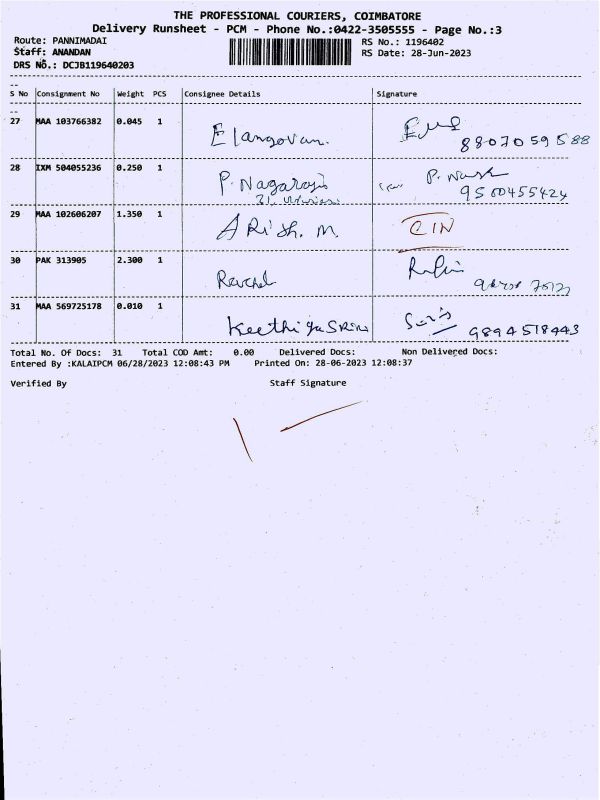 THE PROFESSIONAL COURIERS, COIMBATORE
Delivery Runsheet - PCM - Phone No.:0422-3505555 - Page No.:3
Route: PANNIMADAI RS No.: 1196402
Staff: ANANDAN RS Date: 28-Jun-2023
DRS No.: DCJB119640203
S No Consignment No Weight PCS Consignee Details Signature
27 MAA 103766382 0.045 1 Elangovan.
8807059588
28 IXM 504055236 0.250 1 P. Nagaraj
9500455424
29 MAA 102606207 1.350 1 ARish. M
30 PAK 313905 2.300 1
31 MAA 569725178 0.010 1
9894518443
Total No. Of Docs: 31 Total COD Amt: 0.00 Delivered Docs: Non Delivered Docs:
Entered By :KALAIPCM 06/28/2023 12:08:43 PM Printed On: 28-06-2023 12:08:37
Verified By Staff Signature